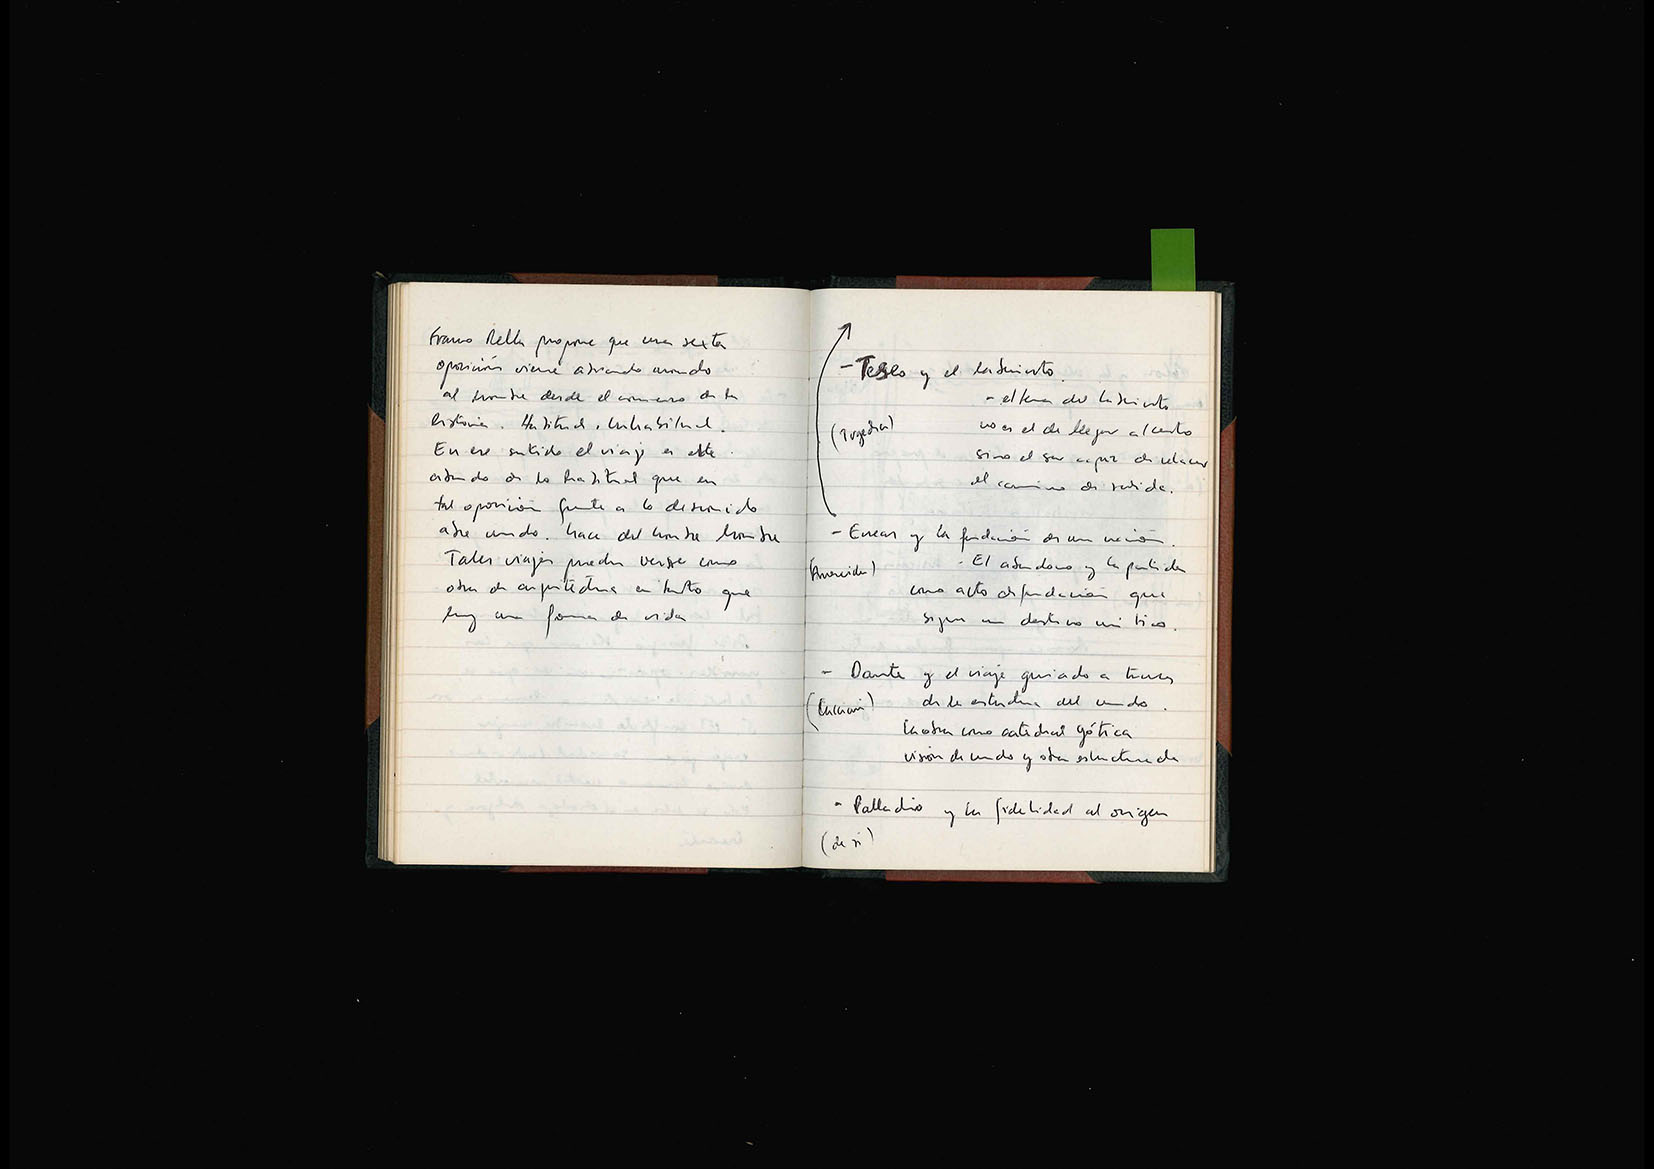 Franco Rella propone que una sexta
oposición viene abriendo mundo
al hombre desde el comienzo de la
historia. Habitual, Inhabitual.
En ese sentido el viaje es este
abando de lo habitual que en
tal oposición frente a lo desconocido
abre mundo. hace del hombre hombre
Tales viajes pueden verse como
obra de arquitectura en tanto que
hay una forma de vida
- Teseo y el laberinto.
- el tema del laberinto
(Tragedia)
no es el de llegar al centro
sino el ser capaz de rehacer
el camino de salida.
- Eneas y la fundación de una nación.
- El abandono y la partida
como acto de fundación que
sigue un destino mítico.
- Dante y el viaje guiado a traves
de la estructura del mundo.
la obra como catedral gótica
visión de mundo y obra estructurada
- Palladio y la fidelidad al origen
(de sí)